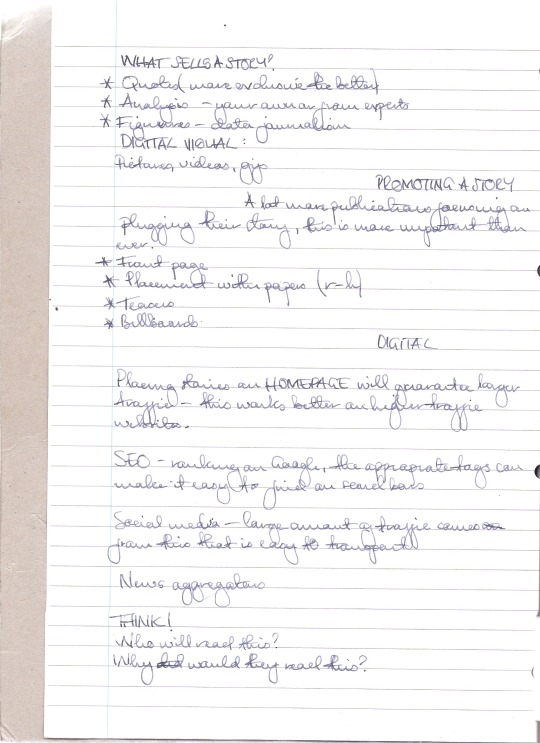 WHAT SELLS A STORY?
* Quotes (more exclusive the better)
* Analysis - your own or from experts
* Figures - data journalism
DIGITAL VISUAL:
Pictures, videos, gifs
PROMOTING A STORY
A lot more publications focusing on
plugging their story, this is more important than
ever.
* Front page
* Placement within papers (r-h)
* Teasers
* Billboards
DIGITAL
Placing stories on HOMEPAGE will guarantee larger
traffic - this works better on higher traffic
websites.
SEO - ranking on Google, the appropriate tags can
make it easy to find on search bars
Social media - large amount of traffic comes
from this that is easy to transport
News aggregators
THINK!
Who will read this?
Why would they read this?